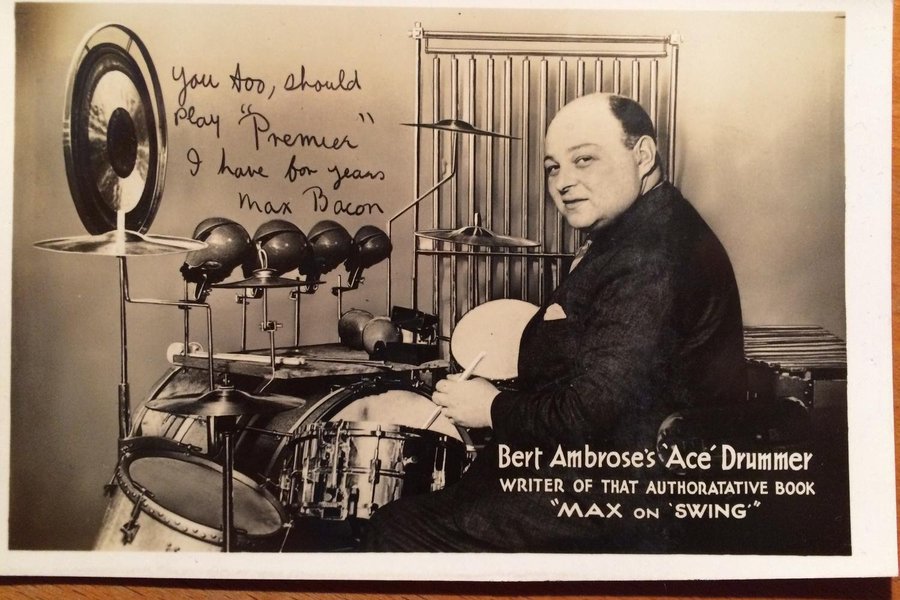 You too, should
Play "Premier"
I have for years
Max Bacon
Bert Ambrose's 'Ace' Drummer
WRITER OF THAT AUTHORATATIVE BOOK
"MAX ON 'SWING'"